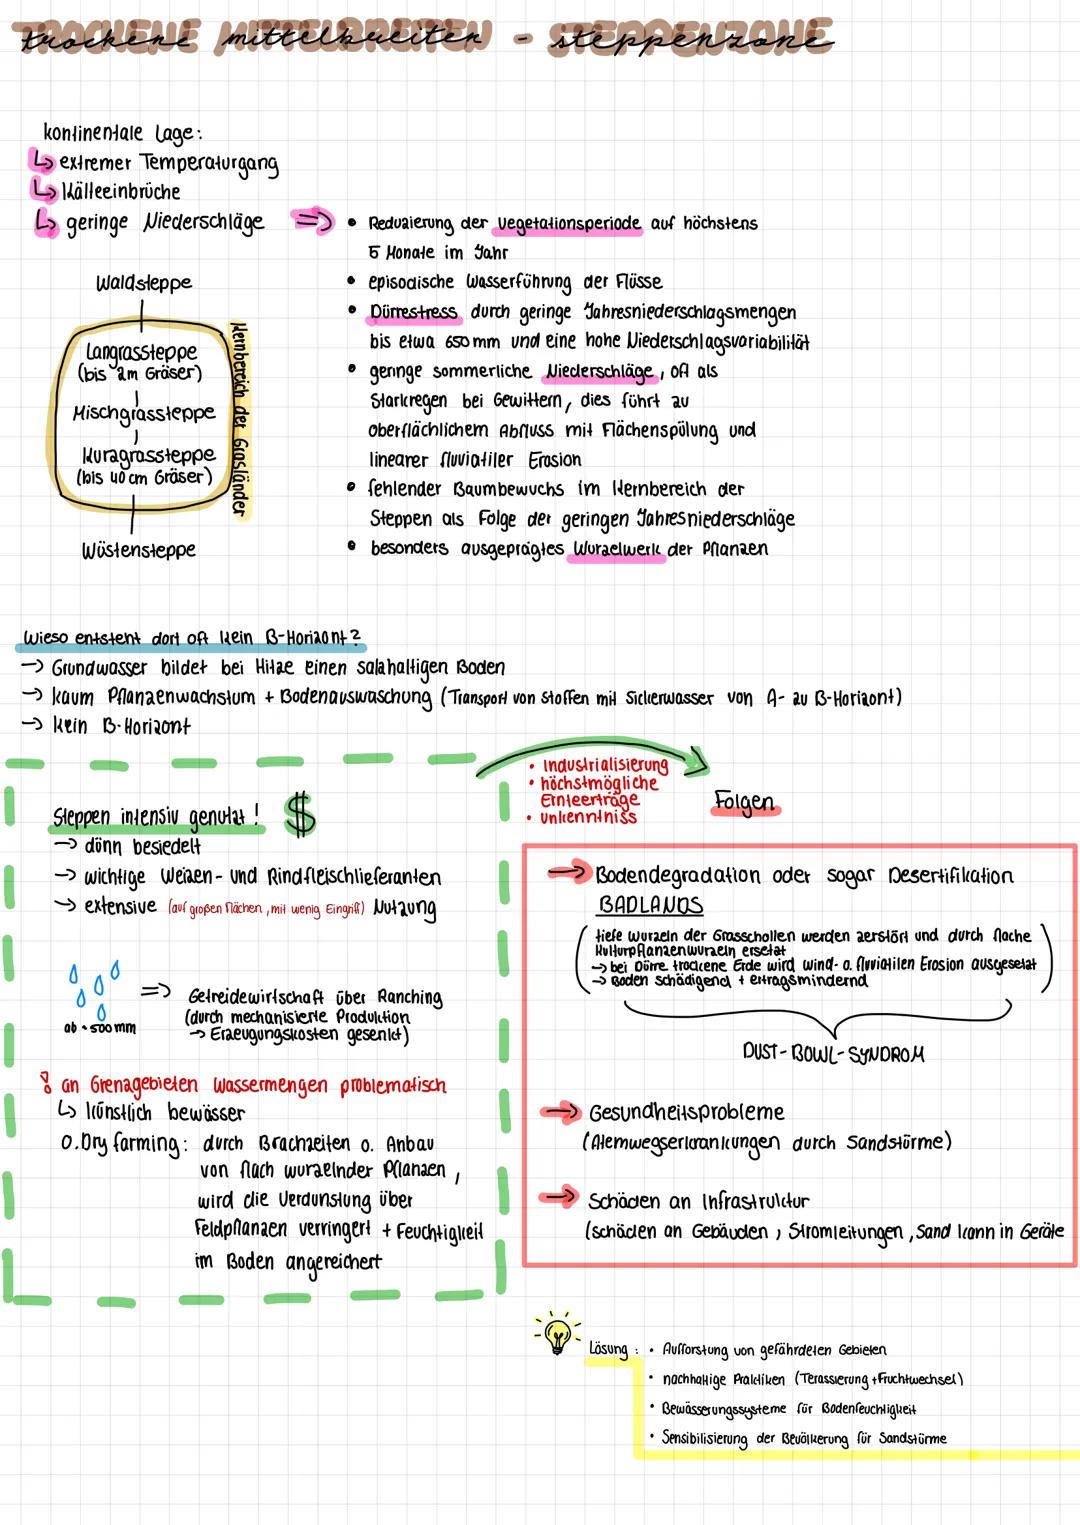 trockene mittelbreiten - steppenzone
kontinentale Lage:
↳ extremer Temperaturgang
↳ Kälteeinbrüche
↳ geringe Niederschläge ⇒
• Reduzierung der Vegetationsperiode auf höchstens
5 Monate im Jahr
• episodische Wasserführung der Flüsse
• Dürrestress durch geringe Jahresniederschlagsmengen
bis etwa 650 mm und eine hohe Niederschlagsvariabilität
• geringe sommerliche Niederschläge, oft als
Starkregen bei Gewittern, dies führt zu
oberflächlichem Abfluss mit Flächenspülung und
linearer fluviatiler Erosion
• fehlender Baumbewuchs im Kernbereich der
Steppen als Folge der geringen Jahresniederschläge
• besonders ausgeprägtes Wurzelwerk der Pflanzen
Waldsteppe
Langrassteppe
(bis 2m Gräser)
Mischgrassteppe
Kurzgrassteppe
(bis 40 cm Gräser)
Wüstensteppe
Kernbereich der Grasländer
Wieso entsteht dort oft kein B-Horizont?
→ Grundwasser bildet bei Hitze einen salzhaltigen Boden
→ kaum Pflanzenwachstum + Bodenauswaschung (Transport von Stoffen mit Sickerwasser von A- zu B-Horizont)
→ kein B-Horizont
Steppen intensiv genutzt! $
→ dünn besiedelt
→ wichtige Weizen- und Rindfleischlieferanten
→ extensive (auf großen Flächen, mit wenig Eingriff) Nutzung
ab ~500mm
⇒ Getreidewirtschaft über Ranching
(durch mechanisierte Produktion
→ Erzeugungskosten gesenkt)
! an Grenzgebieten Wassermengen problematisch
↳ künstlich bewässer
o. Dry farming: durch Brachzeiten o. Anbau
von flach wurzelnder Pflanzen,
wird die Verdunstung über
Feldpflanzen verringert + Feuchtigkeit
im Boden angereichert
• Industrialisierung
• höchstmögliche
Ernteerträge
• unkenntniss
Folgen
→ Bodendegradation oder sogar Desertifikation
BADLANDS
(tiefe wurzeln der Grasschollen werden zerstört und durch flache
Kulturpflanzenwurzeln ersetzt
→ bei Dürre trockene Erde wird wind- o. fluviatilen Erosion ausgesetzt
→ Boden schädigend + ertragsmindernd)
DUST-BOWL-SYNDROM
→ Gesundheitsprobleme
(Atemwegserkrankungen durch Sandstürme)
→ Schäden an Infrastruktur
(schäden an Gebäuden, Stromleitungen, Sand kann in Geräte
Lösung: • Aufforstung von gefährdeten Gebieten
• nachhaltige Praktiken (Terassierung + Fruchtwechsel)
• Bewässerungssysteme für Bodenfeuchtigkeit
• Sensibilisierung der Bevölkerung für Sandstürme